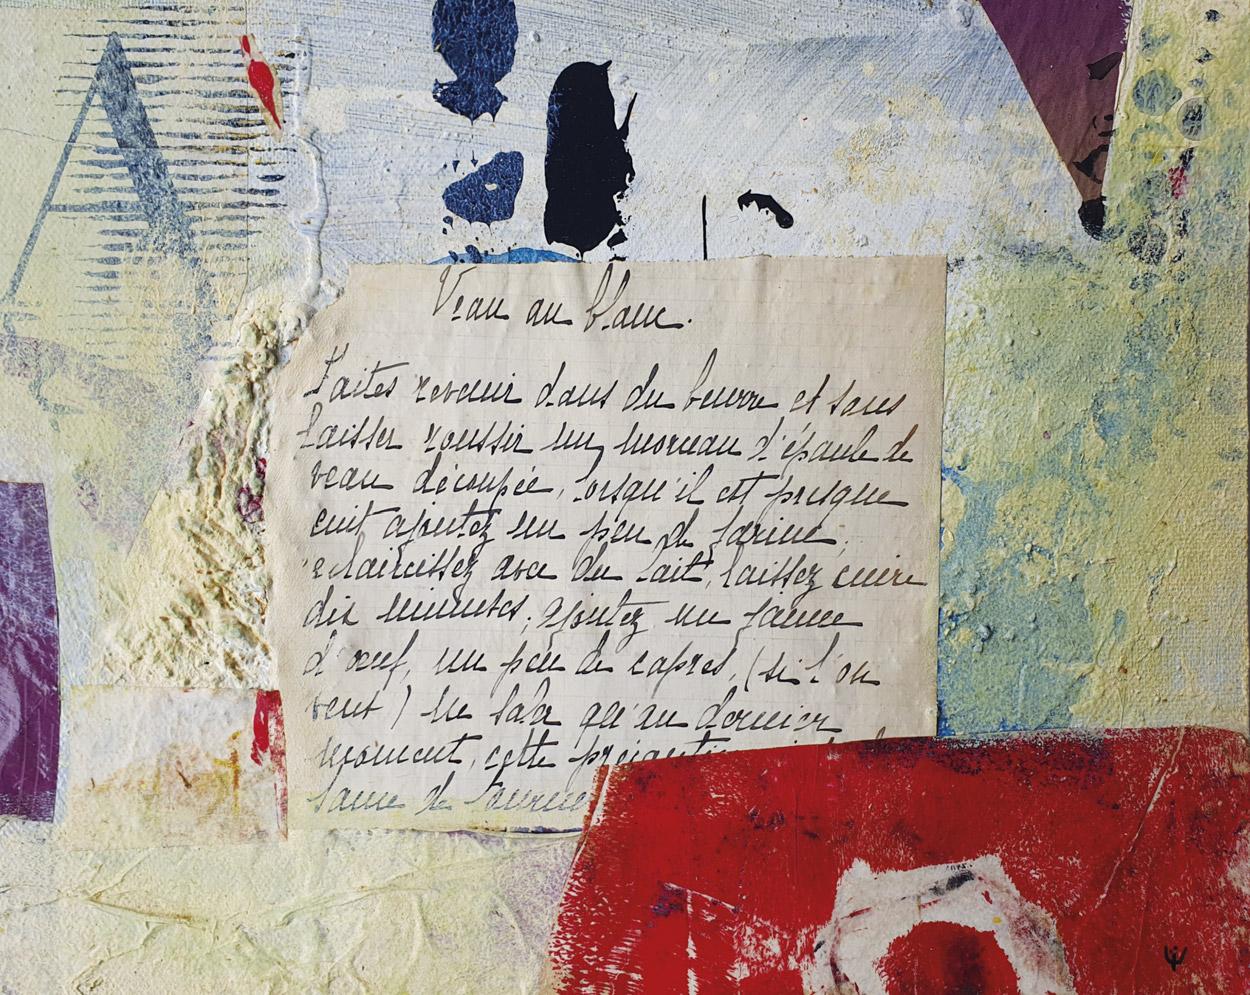 A
Veau au blanc.
Faites revenir dans du beurre et sans
laisser roussir un morceau d'épaule de
veau découpée, lorsqu'il est presque
cuit ajoutez un peu de farine,
eclaircissez avec du lait, laissez cuire
dix minutes, ajoutez un jaune
d'œuf, un peu de capres, (si l'on
veut) ne saler qu'au dernier
moment, cette précaution
sauce de tourner